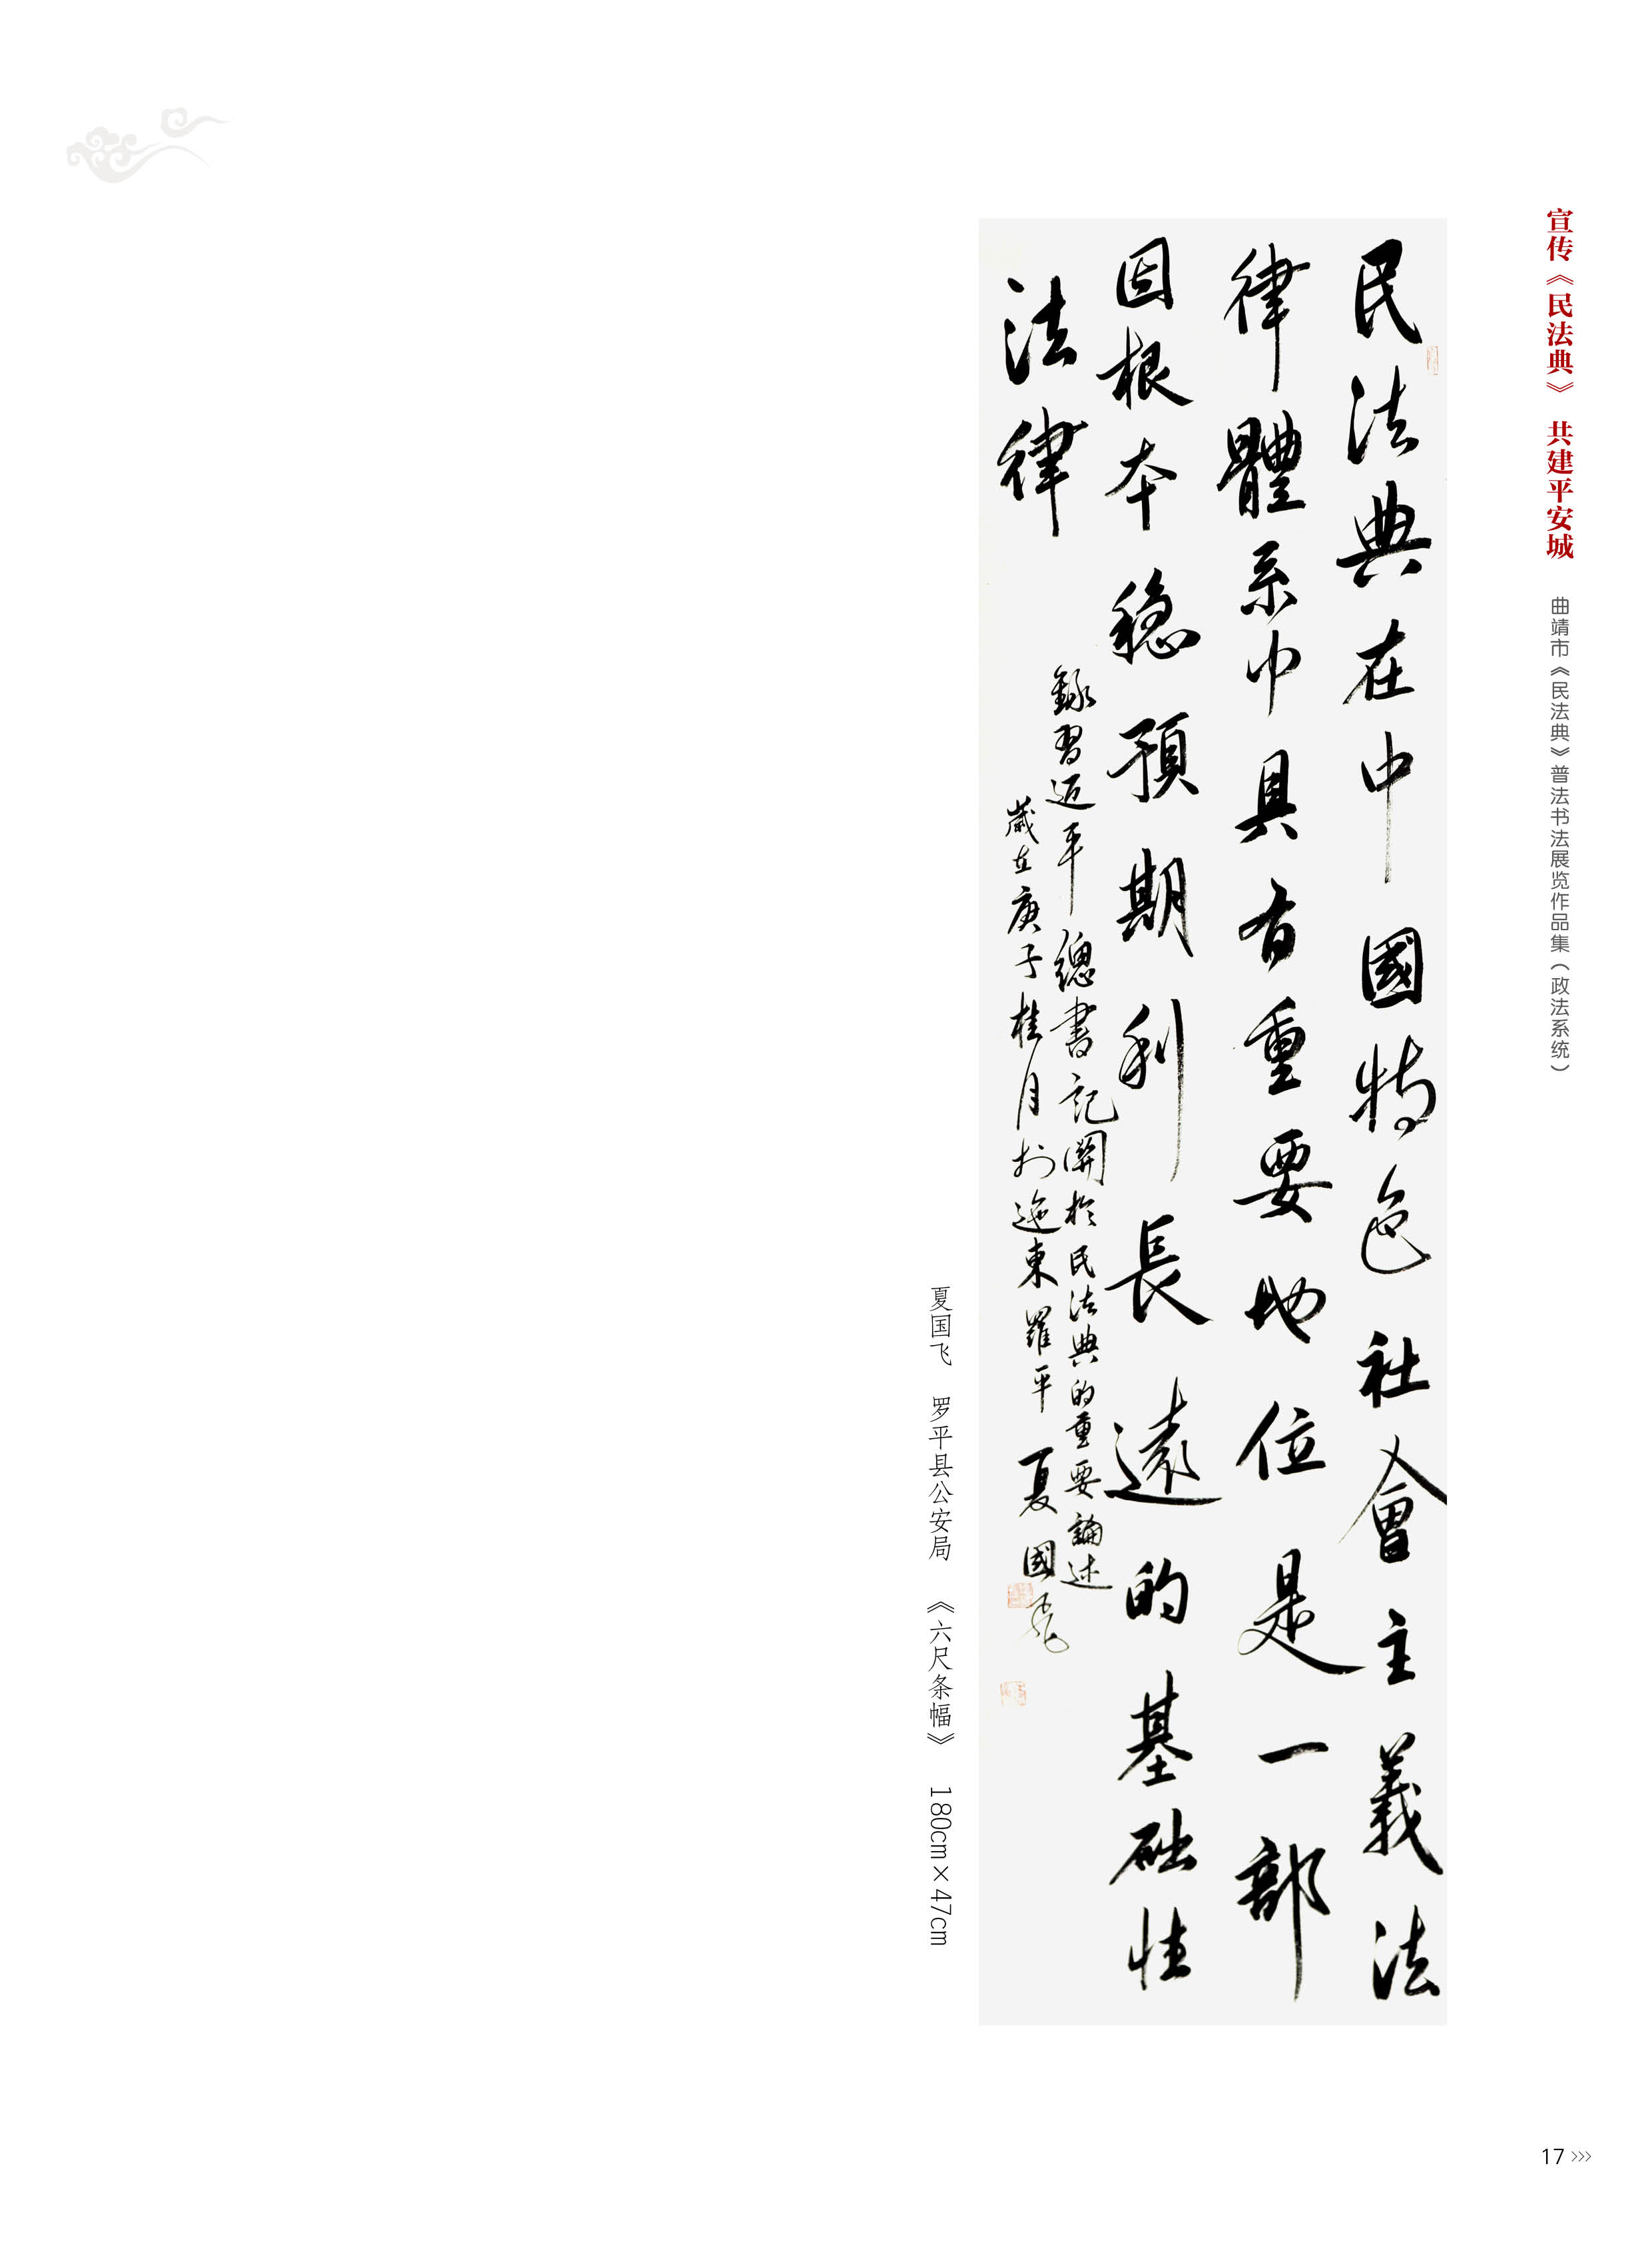 宣传《民法典》 共建平安城
曲靖市《民法典》普法书法展览作品集（政法系统）
民法典在中國特色社會主義法
律體系中具有重要地位是一部
固根本稳預期利長遠的基础性
法律
録習近平總書記關於民法典的重要論述
歲在庚子桂月於迤東羅平 夏國飛
夏国飞 罗平县公安局 《六尺条幅》 180cm×47cm
17 >>>